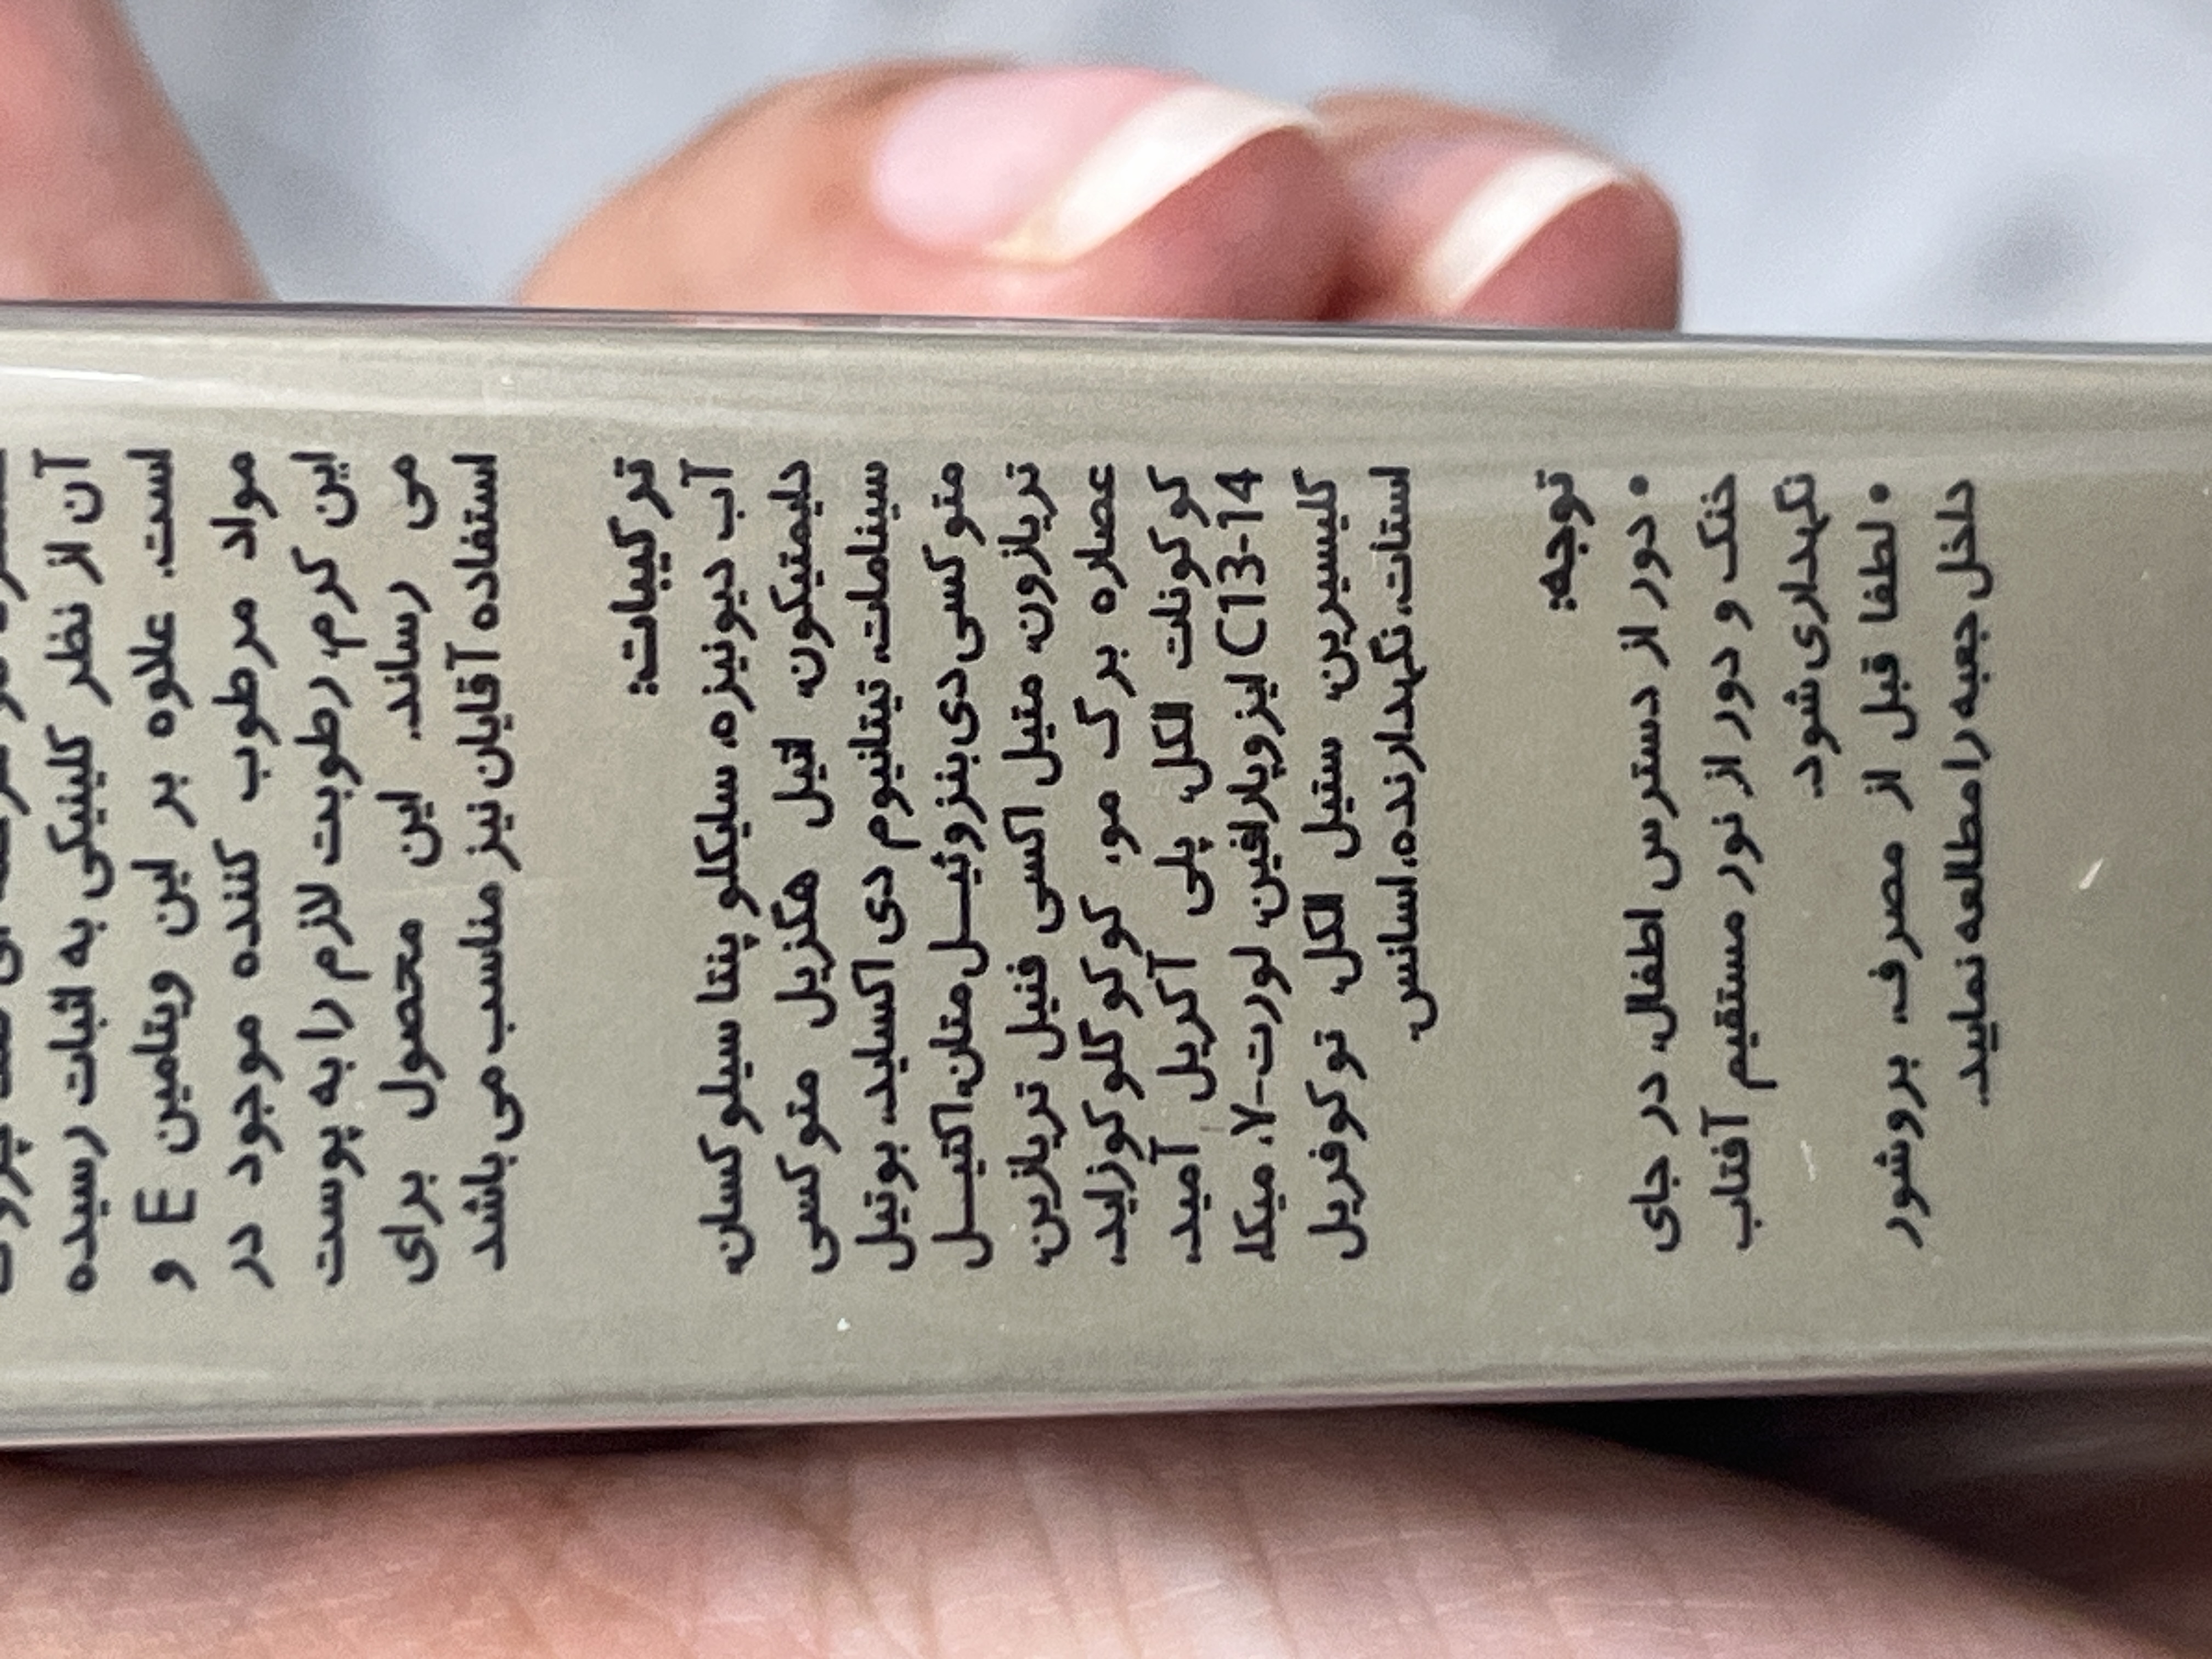 آن از نظر کلینیکی به اثبات رسیده
است. علاوه بر این ویتامین E و
مواد مرطوب کننده موجود در
این کرم، رطوبت لازم را به پوست
می رساند. این محصول برای
استفاده آقایان نیز مناسب می باشد
ترکیبات:
آب دیونیزه، سایکلو پنتا سیلوکسان،
دایمتیکون، اتیل هگزیل متوکسی
سینامات، تیتانیوم دی اکساید، بوتیل
متوکسی دی بنزوئیل متان، اکتیل
تریازون، متیل اکسی فنیل تریازین،
عصاره برگ مو، کوکوگلوکوزاید،
کوکونات الکل، پلی آکریل آمید،
C13-14 ایزوپارافین، لورت-۷، میکا،
گلیسیرین، ستیل الکل، توکوفریل
استات، نگهدارنده، اسانس.
توجه:
• دور از دسترس اطفال، در جای
خنک و دور از نور مستقیم آفتاب
نگهداری شود.
• لطفا قبل از مصرف، بروشور
داخل جعبه را مطالعه نمایید.